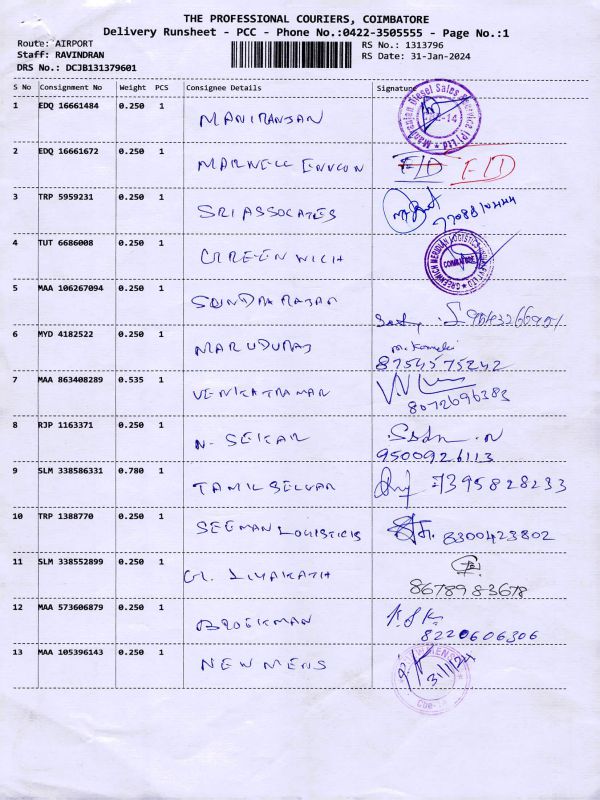 THE PROFESSIONAL COURIERS, COIMBATORE
Delivery Runsheet - PCC - Phone No.:0422-3505555 - Page No.:1
Route: AIRPORT RS No.: 1313796
Staff: RAVINDRAN RS Date: 31-Jan-2024
DRS No.: DCJB131379601
S No Consignment No Weight PCS Consignee Details Signature
1 EDQ 16661484 0.250 1 MANIRANJAN
2 EDQ 16661672 0.250 1 MARWELL ENVCON F/D F/D
3 TRP 5959231 0.250 1 SRI ASSOCATES
4 TUT 6686008 0.250 1 GREENWICH COIMBATORE
5 MAA 106267094 0.250 1 SOUNDARARAJAN
6 MYD 4182522 0.250 1 MARUDURAJ
8754575242
7 MAA 863408289 0.535 1 VENKATRAMAN
8072696383
8 RJP 1163371 0.250 1 N. SEKAR
9500926113
9 SLM 338586331 0.780 1 TAMIL SELVAN 7395828233
10 TRP 1388770 0.250 1 SEEMAN LOGISTICIS 8300423802
11 SLM 338552899 0.250 1 G. LIYAKATH
8678983678
12 MAA 573606879 0.250 1 BROEKMAN
8220606306
13 MAA 105396143 0.250 1 NEWMENS 31/1/24